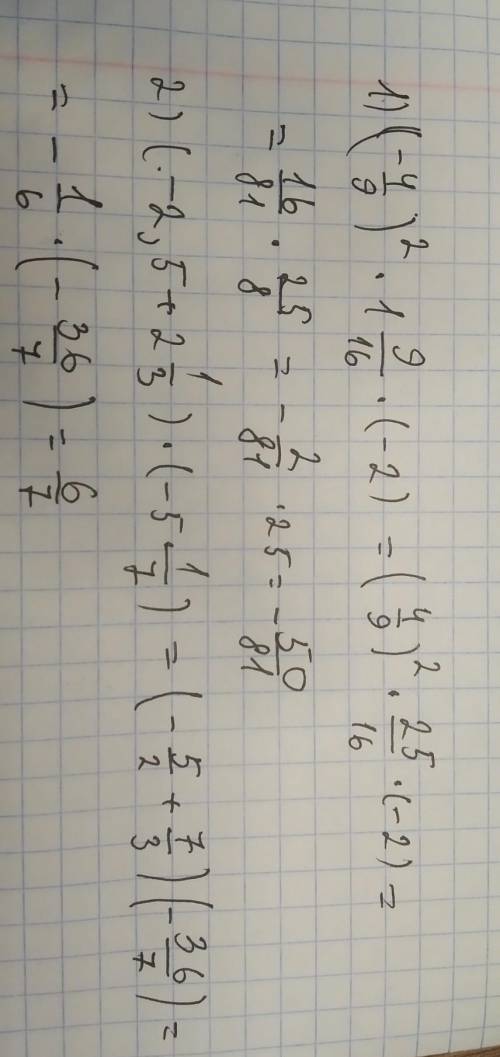 1) (-4/9)² · 1 9/16 · (-2) = (4/9)² · 25/16 · (-2) =
= 16/81 · 25/8 = - 2/81 · 25 = - 50/81
2) (-2,5 + 2 1/3) · (-5 1/7) = (- 5/2 + 7/3) (- 36/7) =
= - 1/6 · (- 36/7) = 6/7